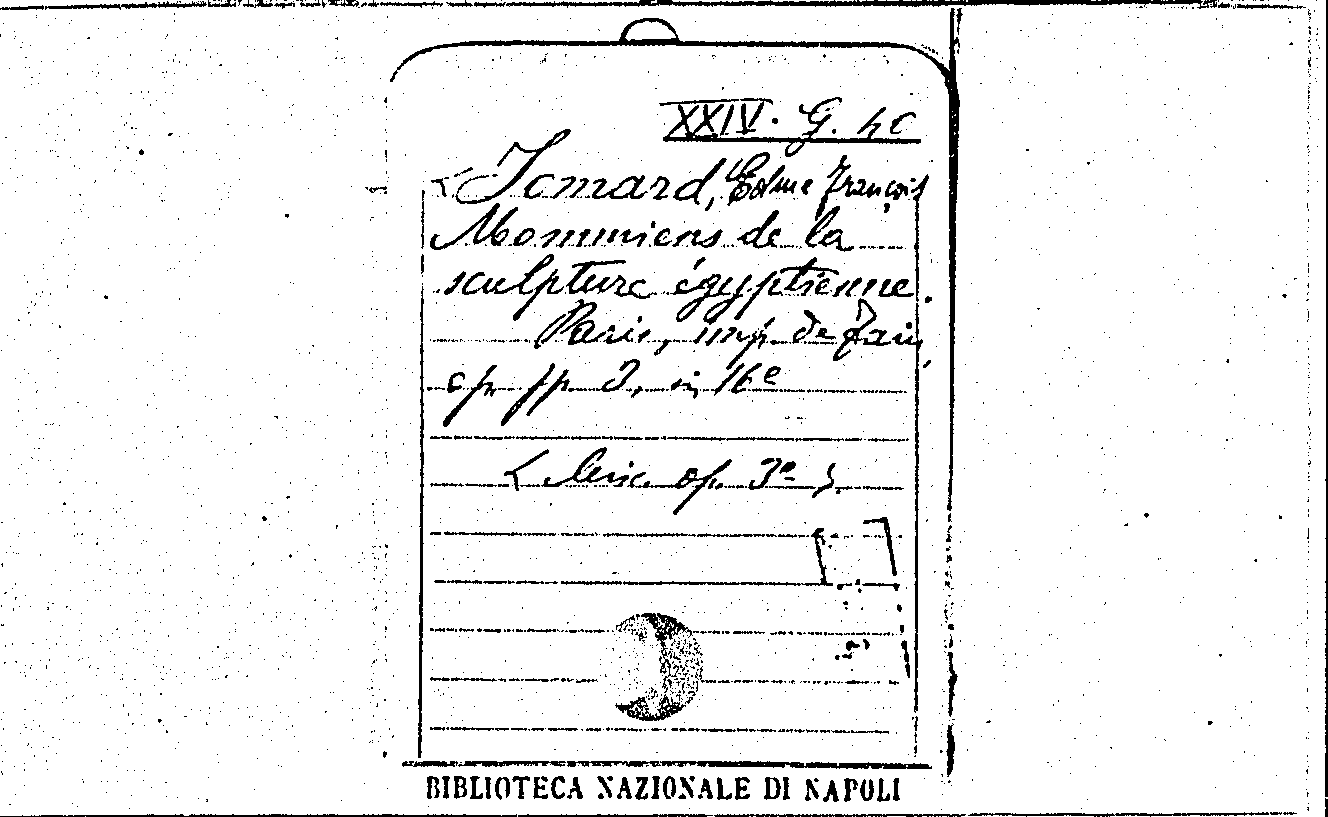 XXIV. G. 40
Jomard, Edme François
Monumens de la
sculpture égyptienne.
Paris, imp. de Fain,
op. pp. 3, in 16º
op. 3ª
BIBLIOTECA NAZIONALE DI NAPOLI